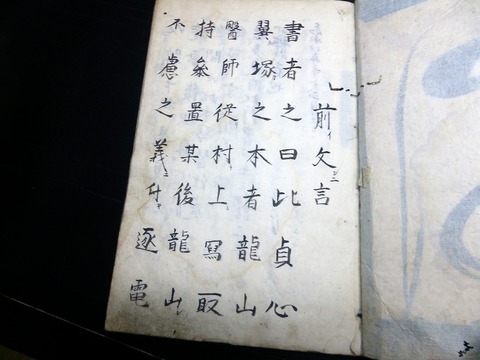 前文言
書者之曰此貞心
翼塚之本者龍山
醫師從村上寫取
持叅置某後龍山
不慮之義ニ付逐電